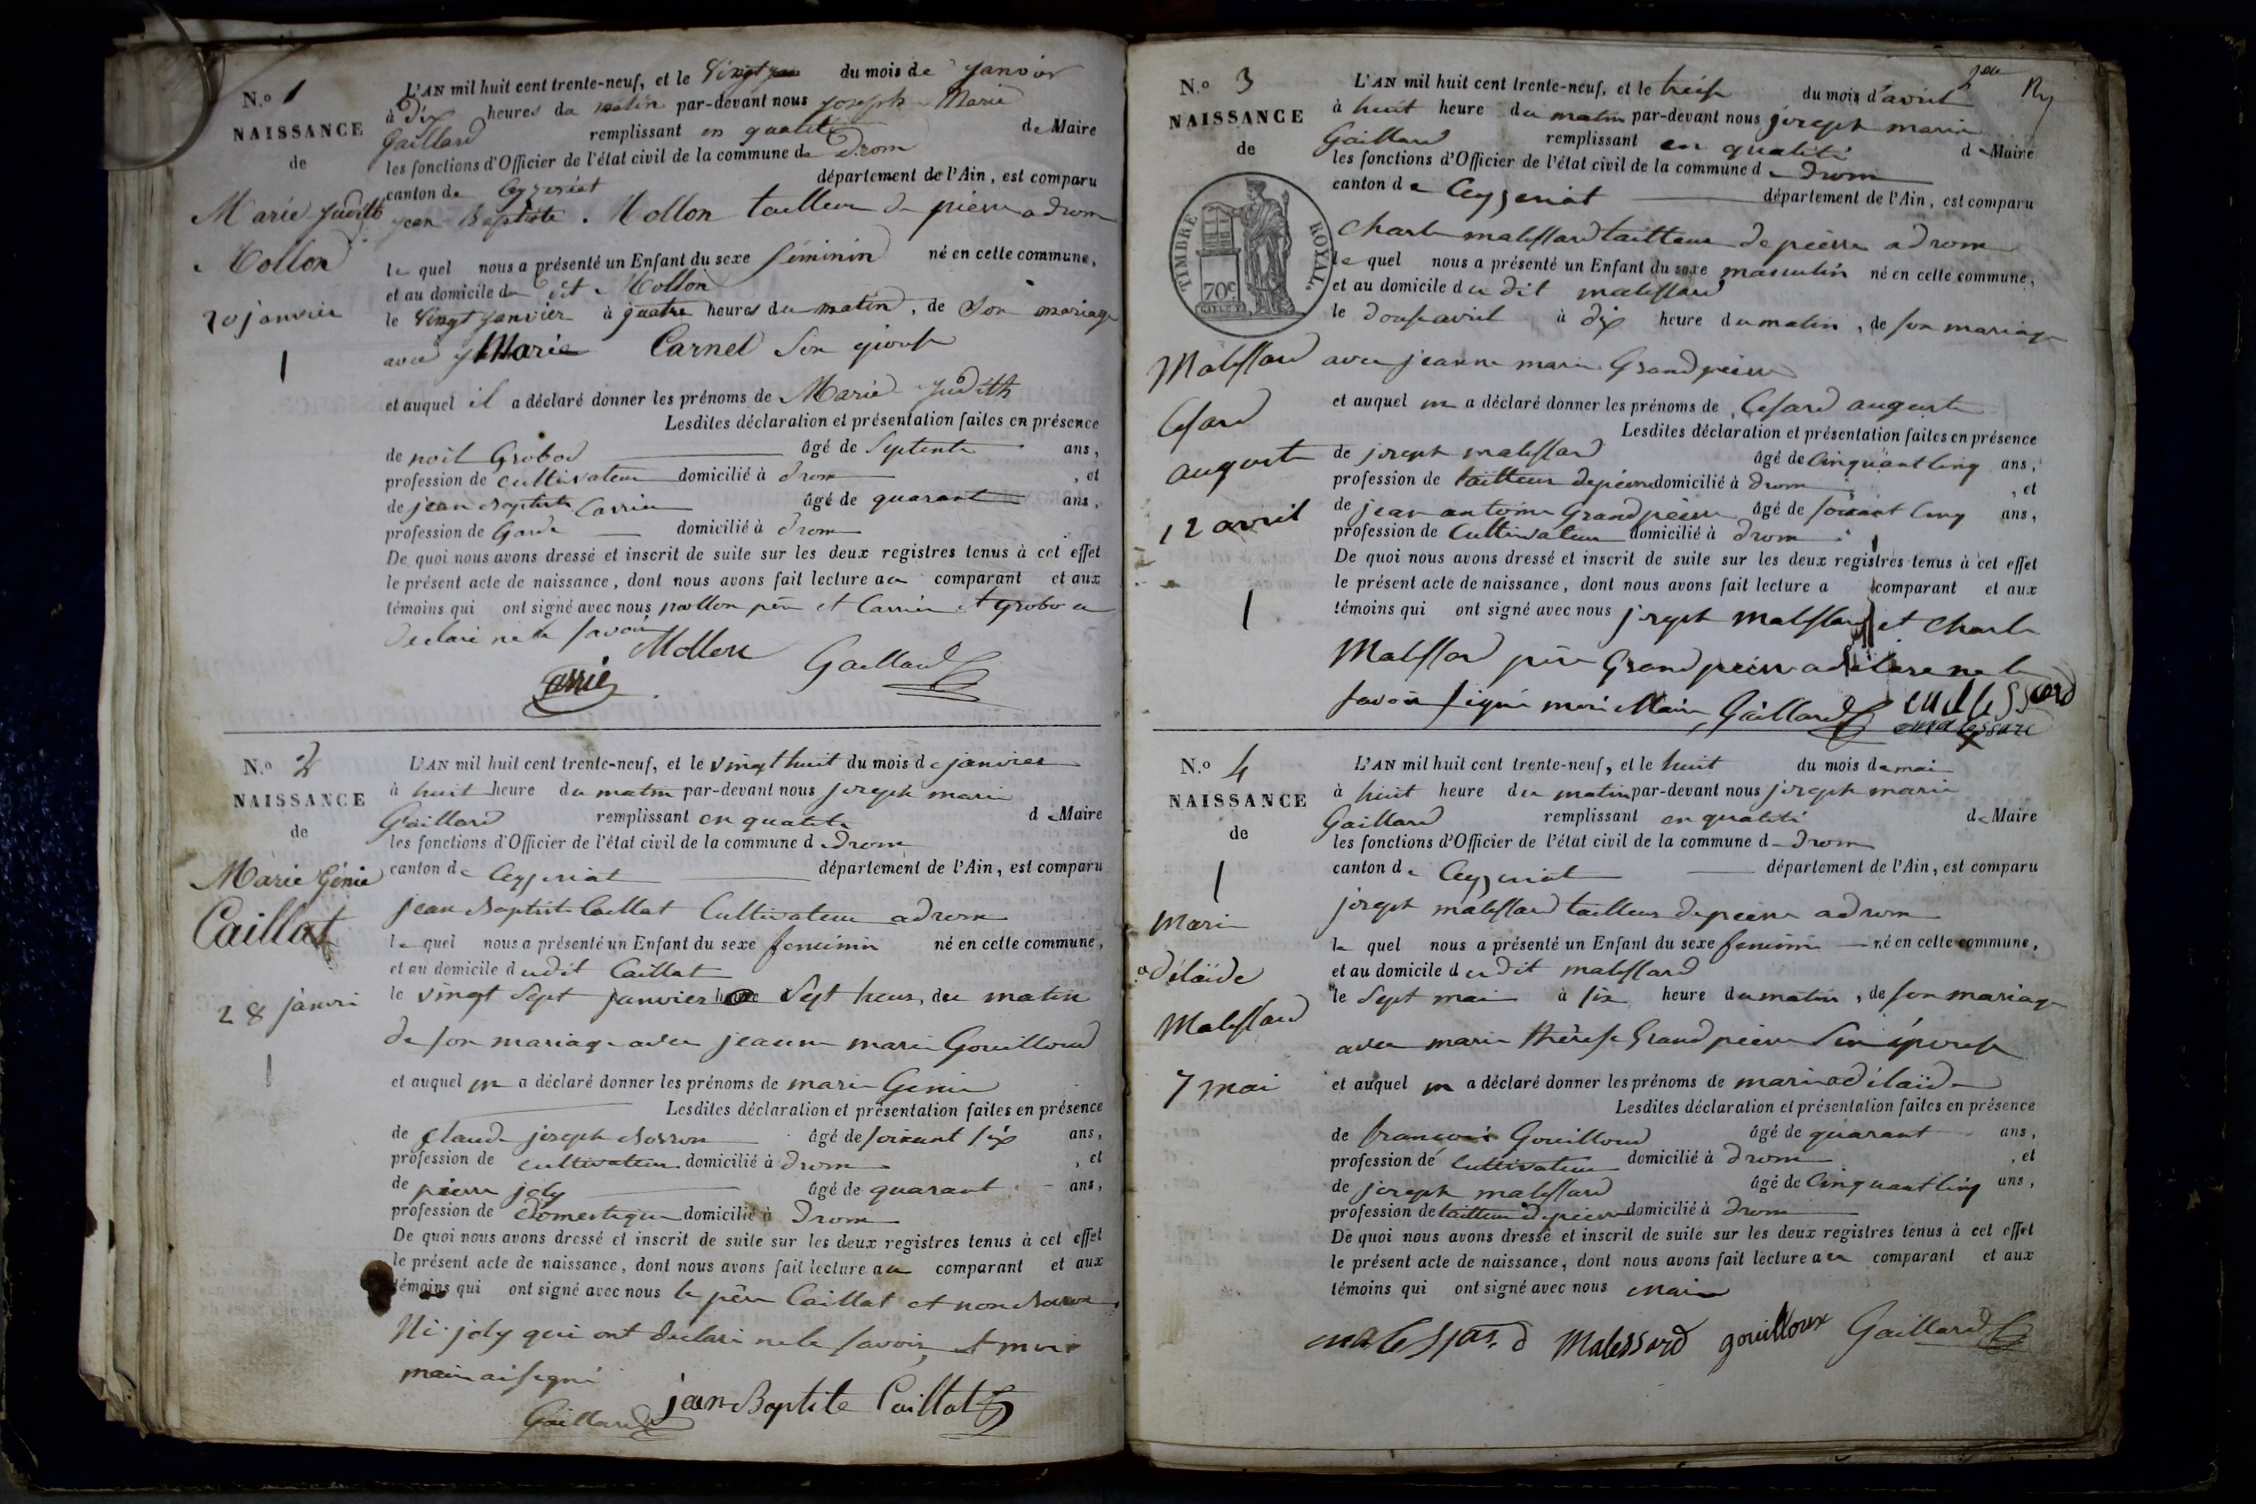 N.o 1
NAISSANCE
de
Marie Judith
Mollon
20 janvier
L'AN mil huit cent trente-neuf, et le vingt du mois de janvier
à dix heures du matin par-devant nous joseph Marie
Gaillard remplissant en qualité de Maire
les fonctions d'Officier de l'état civil de la commune de Drom
canton de Ceyzeriat département de l'Ain, est comparu
jean Baptiste Mollon tailleur de pierre a drom
le quel nous a présenté un Enfant du sexe féminin né en cette commune,
et au domicile du dit Mollon
le vingt janvier à quatre heures du matin, de son mariage
avec Marie Carnel son epouse
et auquel il a déclaré donner les prénoms de Marie Judith
Lesdites déclaration et présentation faites en présence
de noil Grobod âgé de septente ans,
profession de cultivateur domicilié à drom, et
de jean baptiste Carrier âgé de quarant ans,
profession de Garde domicilié à drom
De quoi nous avons dressé et inscrit de suite sur les deux registres tenus à cet effet
le présent acte de naissance, dont nous avons fait lecture au comparant et aux
témoins qui ont signé avec nous mollon père et Carrier et grobo a
declaré ne le savoir
Mollon Gaillard
Carrié
N.o 2
NAISSANCE
de
Marie Génie
Caillat
28 janvi
L'AN mil huit cent trente-neuf, et le vingt huit du mois de janvier
à huit heure du matin par-devant nous joseph marie
Gaillard remplissant en qualité de Maire
les fonctions d'Officier de l'état civil de la commune de Drom
canton de Ceyzeriat département de l'Ain, est comparu
jean Baptiste Caillat Cultivateur a drom
le quel nous a présenté un Enfant du sexe feminin né en cette commune,
et au domicile dudit Caillat
le vingt sept janvier sept heurs du matin
de son mariage avec jeanne marie Gouilloud
et auquel on a déclaré donner les prénoms de marie Genie
Lesdites déclaration et présentation faites en présence
de Claude joseph âgé de soixant six ans,
profession de cultivateur domicilié à drom, et
de pierre joly âgé de quarant ans,
profession de domestique domicilié à Drom
De quoi nous avons dressé et inscrit de suite sur les deux registres tenus à cet effet
le présent acte de naissance, dont nous avons fait lecture au comparant et aux
témoins qui ont signé avec nous le père Caillat et non
Ni joly qui ont declaré ne le savoir, et moi
maire ai signé
jean Baptite Caillat
Gaillard
N.o 3
NAISSANCE
de
TIMBRE ROYAL
70c
Malessard
Cesard
auguste
12 avril
L'AN mil huit cent trente-neuf, et le treise du mois d'avril
à huit heure du matin par-devant nous joseph marie
Gaillard remplissant en qualité de Maire
les fonctions d'Officier de l'état civil de la commune de drom
canton de Ceyzeriat département de l'Ain, est comparu
Charle malessard tailleur de pierre a drom
le quel nous a présenté un Enfant du sexe masculin né en cette commune,
et au domicile du dit malessard
le douse avril à dix heure du matin, de son mariage
avec jeanne marie Grandpierre
et auquel on a déclaré donner les prénoms de Cesard auguste
Lesdites déclaration et présentation faites en présence
de joseph malessard âgé de Cinquant Cinq ans,
profession de tailleur de pierre domicilié à drom, et
de jean antoine Grandpierre âgé de soixant Cinq ans,
profession de Cultivateur domicilié à drom
De quoi nous avons dressé et inscrit de suite sur les deux registres tenus à cet effet
le présent acte de naissance, dont nous avons fait lecture a comparant et aux
témoins qui ont signé avec nous joseph malessard et Charle
Malessard père Grandpierre a declare ne le
savoir signé moi Maire Gaillard
malessard
N.o 4
NAISSANCE
de
Marie
adélaïde
Malessard
7 mai
L'AN mil huit cent trente-neuf, et le huit du mois de mai
à huit heure du matin par-devant nous joseph marie
Gaillard remplissant en qualité de Maire
les fonctions d'Officier de l'état civil de la commune de Drom
canton de Ceyzeriat département de l'Ain, est comparu
joseph malessard tailleur de pierre a drom
le quel nous a présenté un Enfant du sexe feminin né en cette commune,
et au domicile du dit malessard
le sept mai à six heure du matin, de son mariage
avec marie thérèse Grandpierre son épouse
et auquel on a déclaré donner les prénoms de marie adélaïde
Lesdites déclaration et présentation faites en présence
de françois Gouilloud âgé de quarant ans,
profession de Cultivateur domicilié à drom, et
de joseph malessard âgé de Cinquant Cinq ans,
profession de tailleur de pierre domicilié à drom
De quoi nous avons dressé et inscrit de suite sur les deux registres tenus à cet effet
le présent acte de naissance, dont nous avons fait lecture au comparant et aux
témoins qui ont signé avec nous Maire
malessard Malessard gouilloux Gaillard